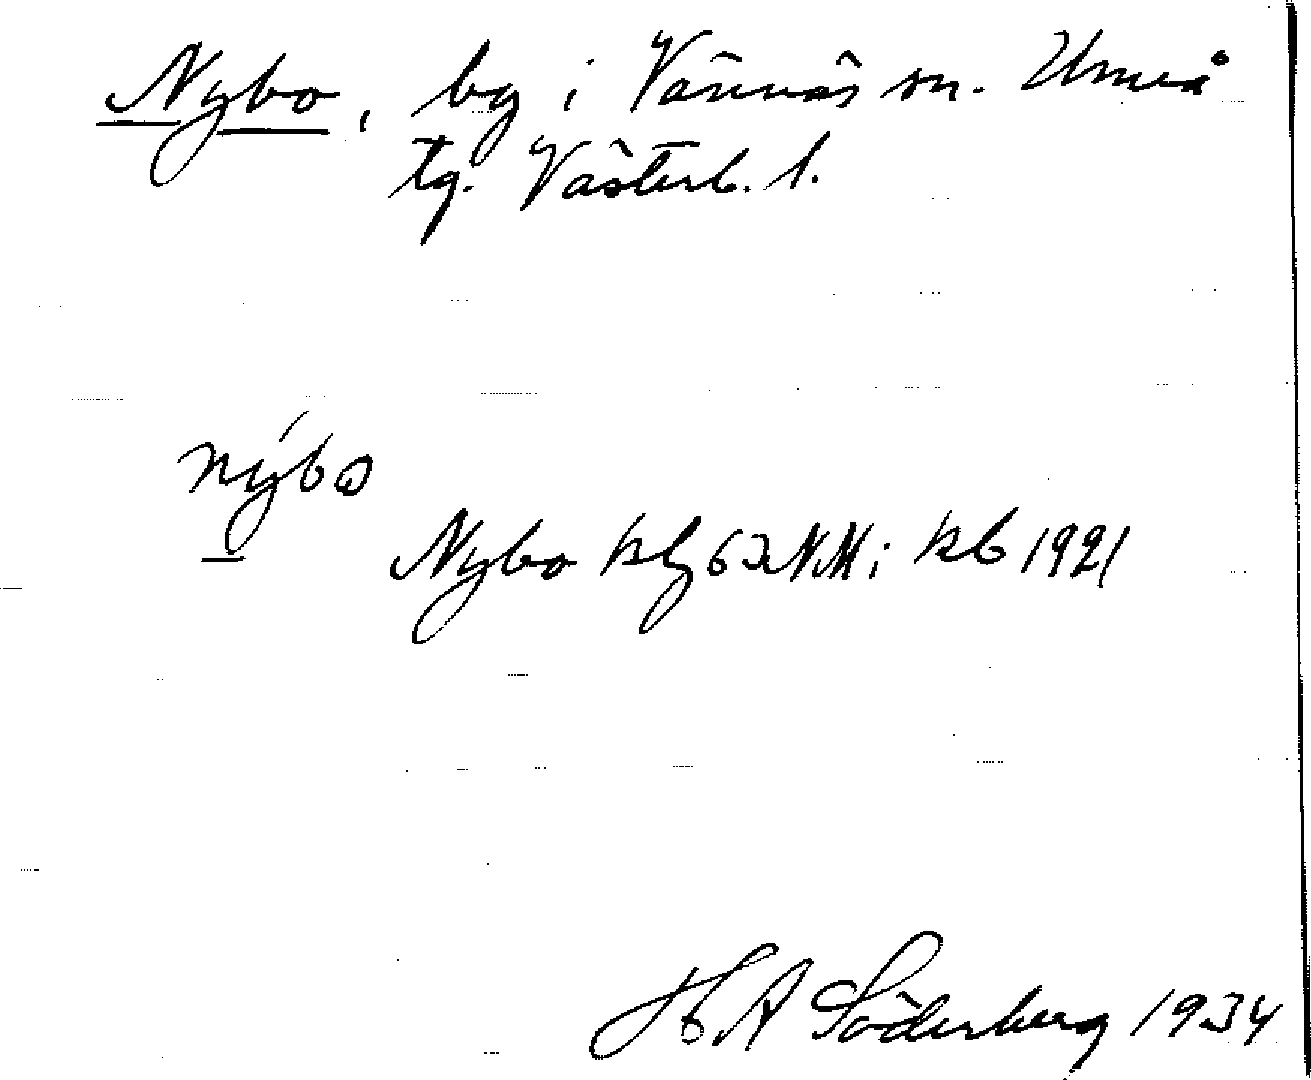 Nybo, by i Vännäs sn. Umeå
tg. Västerb. l.
nýbo
Nybo kbl 63 NM i kb 1921
H A Söderberg 1934